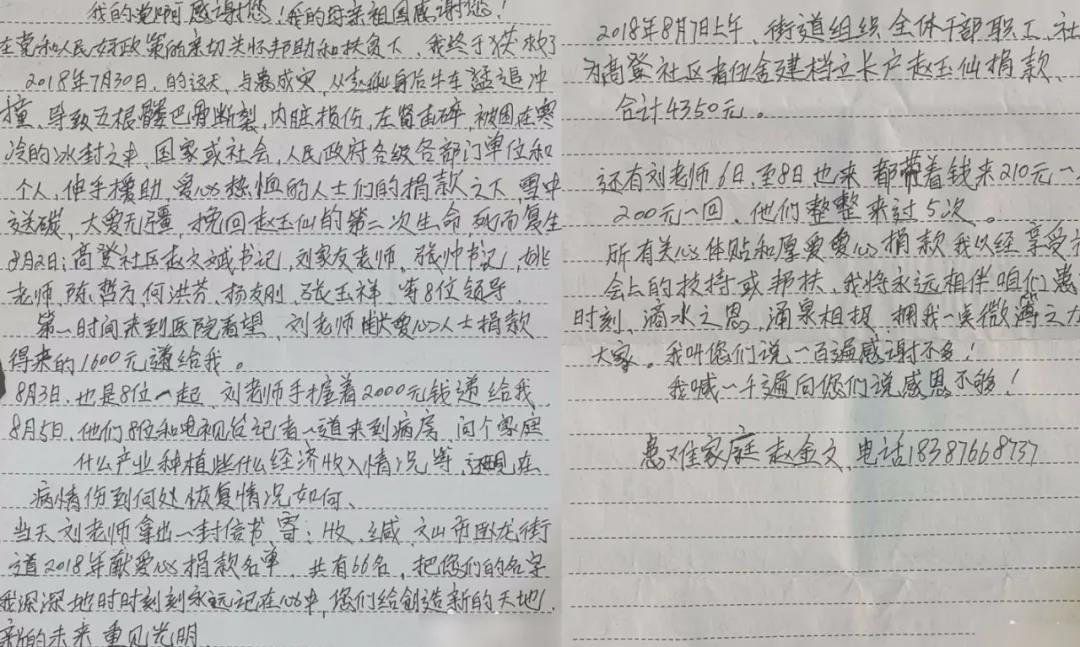 我的党啊感谢您！我的母亲祖国感谢您！
在党和人民好政策的亲切关怀帮助和扶贫下、我终于获救了
2018年7月30日、的这天、与患成灾、从赵仙身后牛车猛追冲
撞、导致五根髅巴骨断裂，内脏损伤，左肾击碎，被困在寒
冷的冰封之中、国家或社会，人民政府各级各部门单位和
个人，伸手援助、爱心热恤的人士们的捐款之下、雪中
送碳，大爱无疆，挽回赵玉仙的第二次生命 死而复生
8月2日；高登社区赵文斌书记，刘家友老师、张帅书记，姚
老师、陈哲方 何洪芳、杨友刚、张玉祥、等8位领导、
第一时间来到医院看望、刘老师献大爱心人士捐款
得来的1600元递给我。
8月3日、也是8位一起、刘老师手握着2000元钱递给我
8月5日、他们8位和电视台记者一道来到病房、问个家庭
什么产业种植些什么经济收入情况等、还现在
病情伤到何处恢复情况如何、
当天刘老师拿出一封信书、写；收、缄、文山市卧龙街
道2018年献爱心捐款名单、共有66名，把您们的名字
我深深地时时刻刻永远记在心中，您们给创造新的天地，
新的未来 重见光明
2018年8月7日上午、街道组织全体干部职工、社
为高登社区者伍舍建档立卡户赵玉仙捐款、
合计4350元。
还有刘老师6日、至8日也来 都带着钱来210元一
200元一回、他们整整来过5次。
所有关心体贴和厚爱爱心捐款我以经享受
会上的扶持或帮扶、我将永远相伴咱们患
时刻、滴水之恩、涌泉相报、拥我一点微薄之力
大家。我叫您们说一百遍感谢不多！
我喊一千遍向您们说感恩不够！
患难家庭 赵金文、电话18387668737